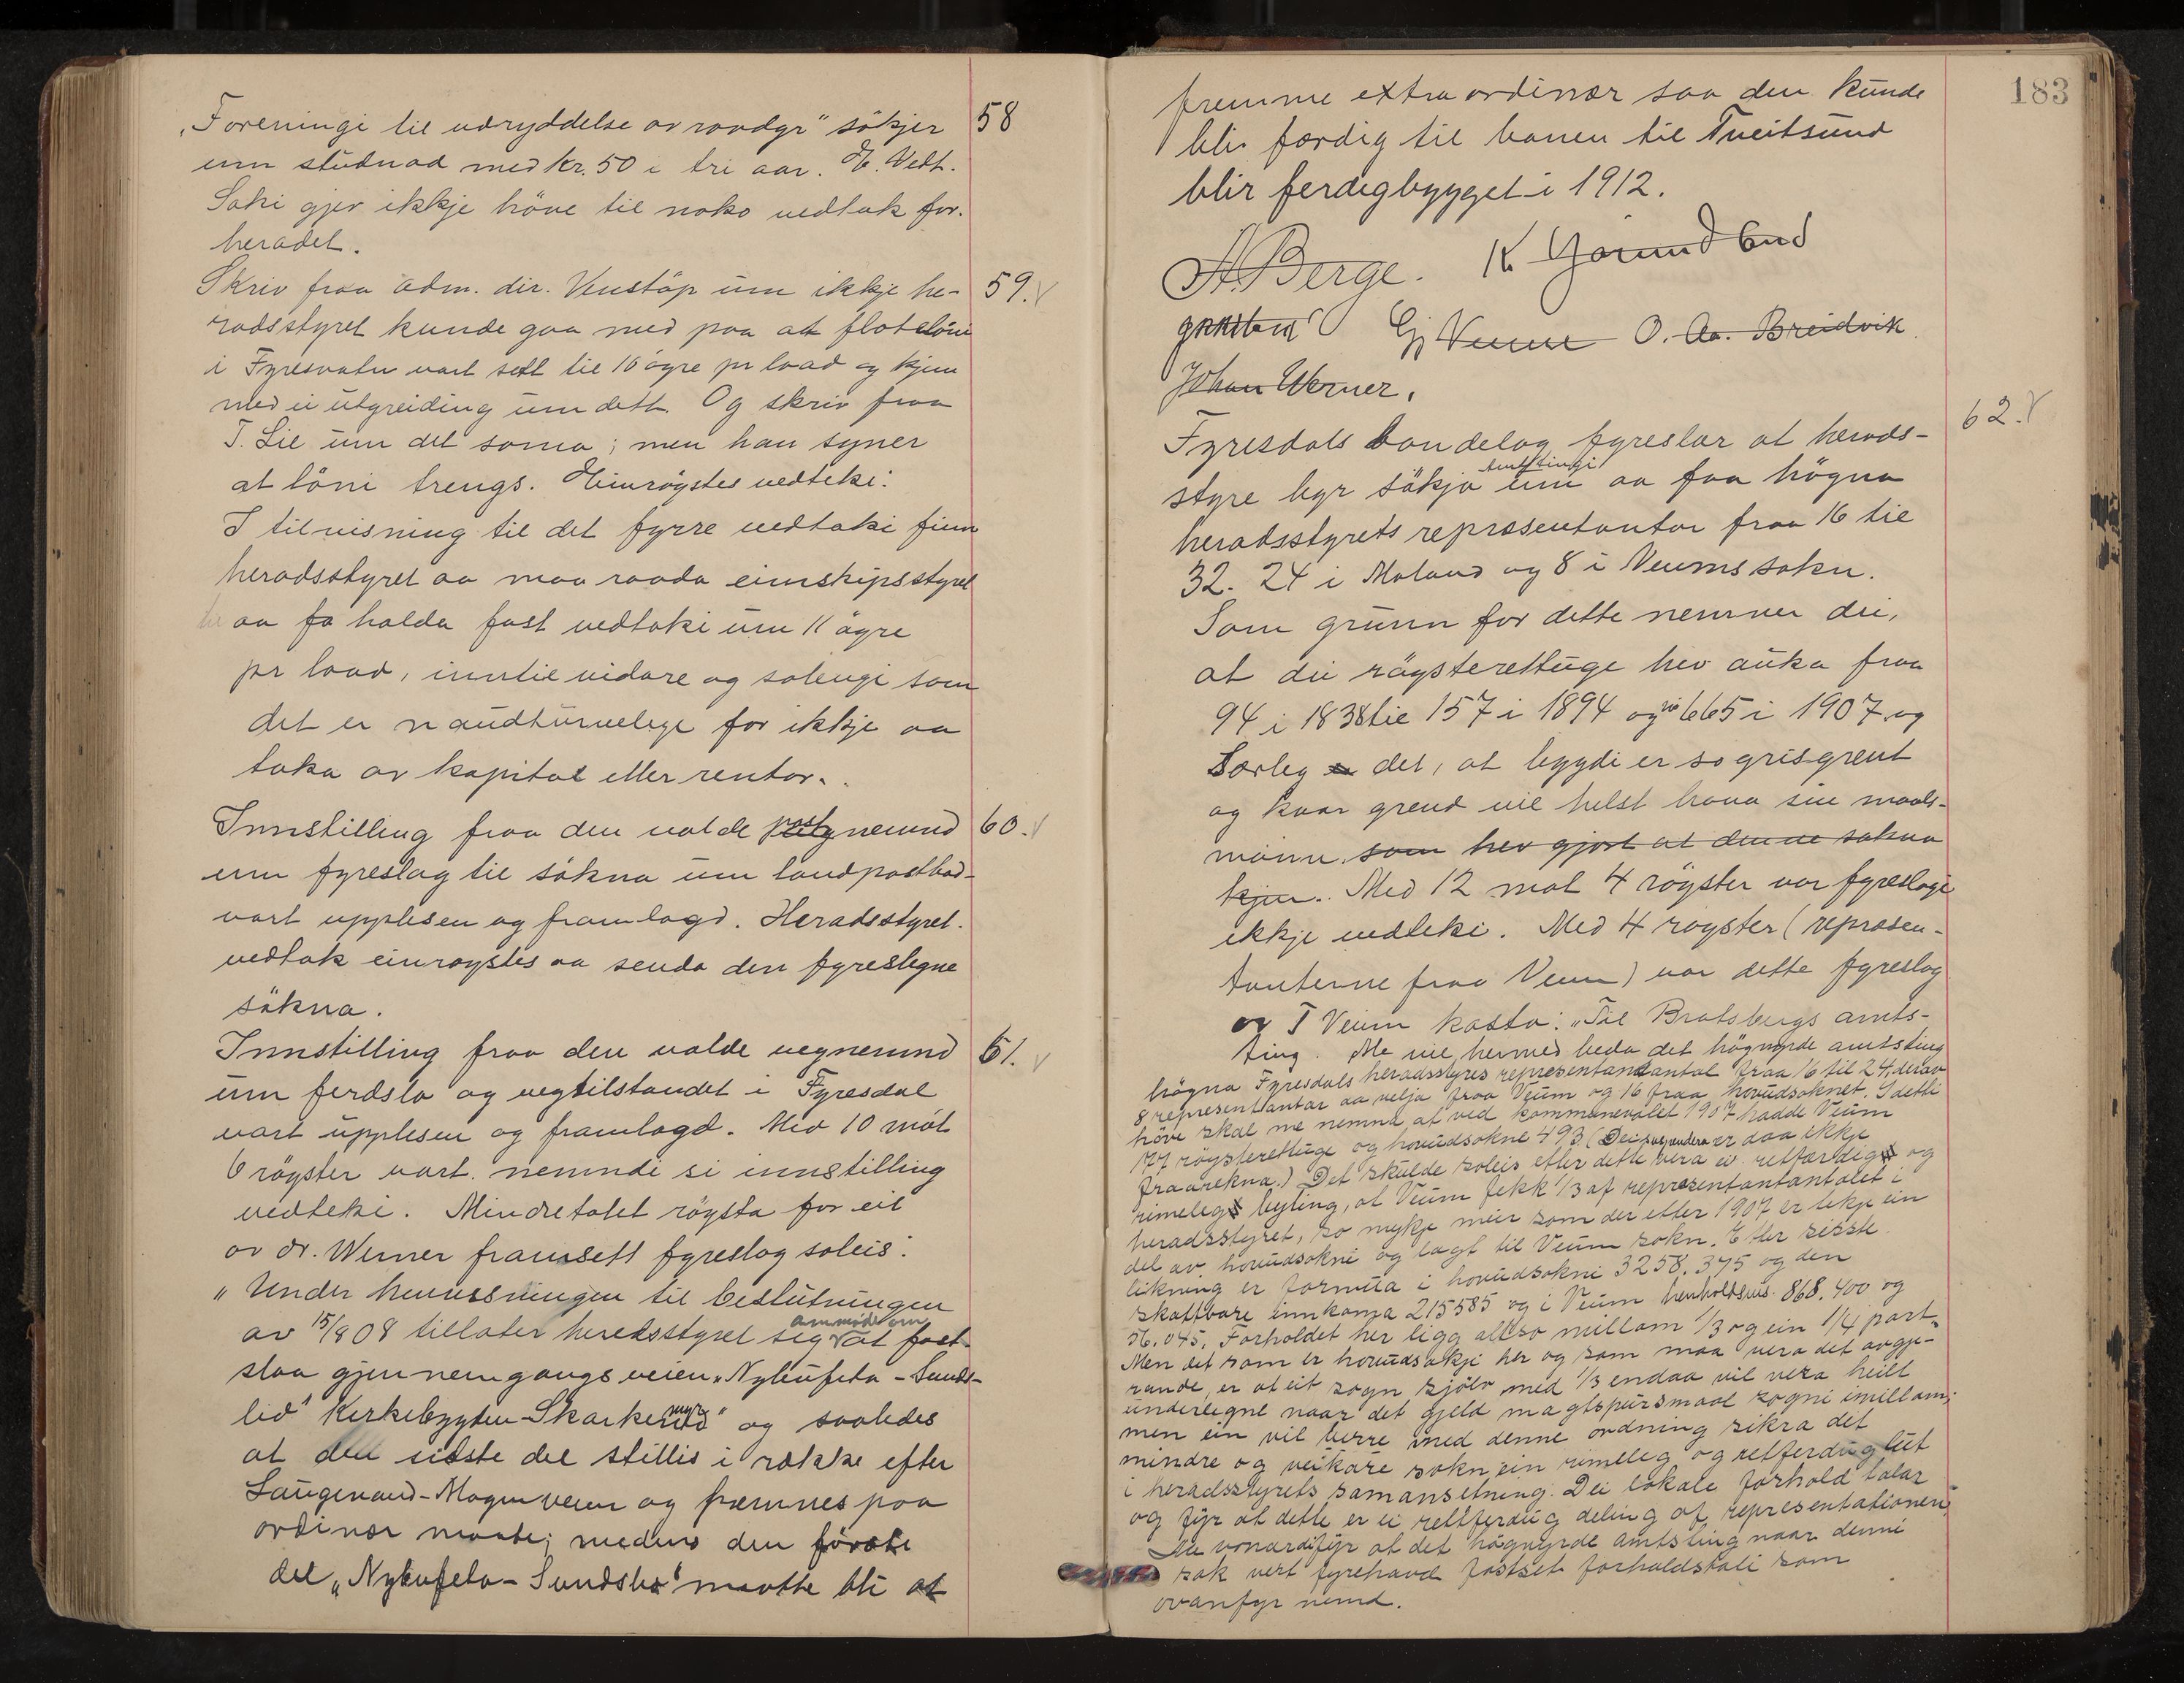 "Foreningi til udryddelse av rovdyr" sökjer 58
um studnad med kr. 50 i tri aar. E. Vedt.
Saki gjev ikkje höve til noko vedtak for.
heradet.
Skriv fraa adm. dir. Venstöp um ikkje he- 59.
radsstyret kunde gaa med paa at flotelöni
i Fyresvatn vart sett til 10 öyre pr load og kjem
med ei utgreiding um dett. Og skriv fraa
T. Lie um det soma; men han syner
at löni trengs. Einrögstes vedteke:
I tilvisning til det fyrre vedtaki finn
heradsstyret aa maa raada eimskipsstyret
aa fa halda fast vedtaki um 11 öyre
pr load, inntil vidare og solengi som
det er naudturvelege for ikkje aa
taka av kapital eller rentor.
Innstilling fraa den valde postnemnd 60.
um fyreslag til sökna um landpostbod-
vart upplesen og framlagd. Heradsstyret.
vedtok einrøystes aa senda den fyreslegne
sökna.
Innstilling fraa den valde vegnemnd 61.
um ferdsla og vegtilstandet i Fyresdal
vart upplesen og framlagd. Med 10 mot
6 röyster vart nemndi si innstilling
vedteki. Mindretalet röysta for eit
av dr. Werner framsett fyreslag soleis:
"Under henvisningen til beslutningen
av 15/8 08 tillater heredsstyret sig ammode om at fast-
slaa gjennemgangsveien "Nykufeta - Sunds-
lid" Kirkebygden - Skarkemyr" og saaledes
at den sidste del stilles i række efter
Laugevand-Mogenveien og fremmes paa
ordinær maate; medens den første
del "Nykufeta - Sundsli" maatte bli at
183
fremme extraordinær saa den kunde
bli færdig til banen til Tveitsund
blir ferdigbygget i 1912.
A. Berge. K Gjørund
Gj Veum O. Aa. Breidvik
Johan Werner.
Fyresdals bondelag fyreslær at herads- 62.
styre byr sökja amtstingi um aa faa högna
heradsstyrets repræsentantar fraa 16 til
32. 24 i Moland og 8 i Veums sokn.
Som grunn for dette nemner dei,
at dei röysterettuge hev auka fraa
94 i 1838 til 157 i 1894 og no 665 i 1907 og
Særleg det, at bygdi er so grisgrent
og kvar grend vil helst hava sin maals-
mann. som hev gjort at denne sakna
kjem. Med 12 mot 4 röyster var fyreslage
ikkje vedteki. Med 4 royster (represen-
tanterne fraa Veum) var dette fyreslag
av T Veum kasta: "Til Bratsbergs amts-
ting. Me vil hermed beda det högvyrde amtsting
högna Fyresdals heradsstyres representantantal fraa 16 til 24, derav
8 representantar aa velja fraa Veum og 16 fraa hovudsoknet. I detti
höve skal me nemna, at ved kommunevalet 1907 hadde Veum
177 röysterettuge og hovudsokne 493 (Dei suspendera er daa ikkje
fraarekna.) Det skulde soleis efter dette vera ei retfærdig og
rimeleg byting, at Veum fekk 1/3 af representantantalet i
heradsstyret, so mykje meir som der etter 1907 er tekje ein
del av hovudsokni og lagt til Veum sokn. Etter sisste
likning er formua i hovudsokni 3258.375 og den
skattbare innkoma 215585 og i Veum henholdsvis 868.400 og
56.045. Forholdet her ligg altso millom 1/3 og ein 1/4 part.
Men det som er hovudsakji her og som maa vera det avgje-
rande, er at eit sogn sjölv med 1/3 endaa vil vera heilt
underlegne naar det gjeld magtspursmaal sogni imillom;
men ein vil berre med denne ordning sikra det
mindre og veikare sokn ein rimeleg og retferdug lut
i heradsstyrets samansetning. Dei lokale forhold talar
og fyr at dette er ei rettferdug deling af representationen,
Me vonar difyr at det högvyrde amtsting naar denne
sak vert fyrehavd fastset forholdstali som
ovanfyr nemd.